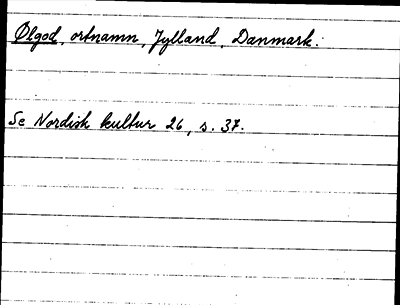 Ølgod, ortnamn, Jylland, Danmark.
Se Nordisk kultur 26, s. 37.